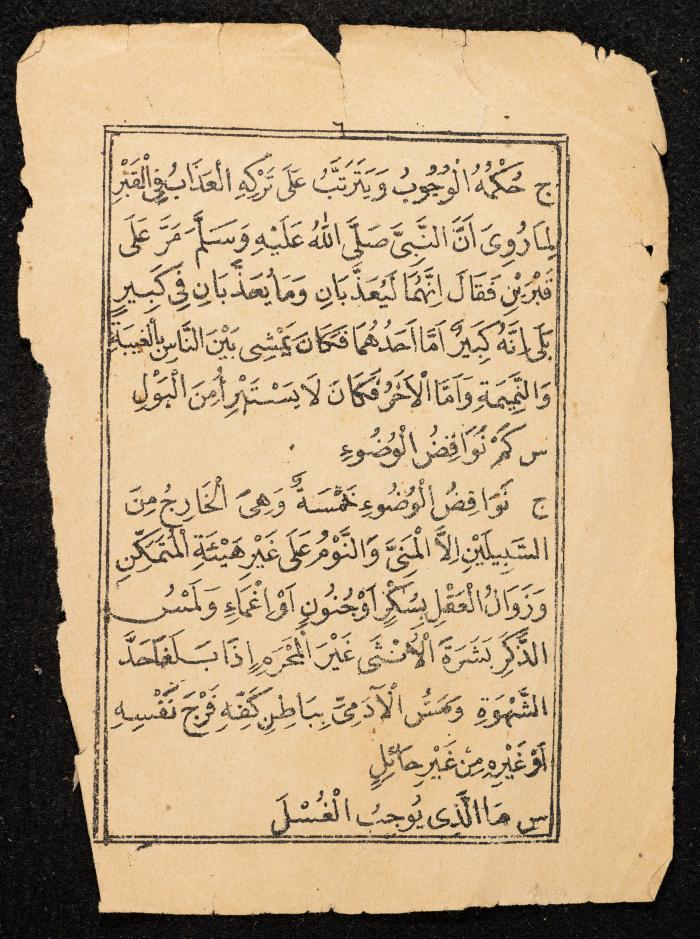 ٦
ج حُكْمُهُ الْوُجُوبُ وَيَتَرَتَّبُ عَلَى تَرْكِهِ الْعَذَابُ فِى الْقَبْرِ
لِمَا رُوِىَ اَنَّ النَّبِىَّ صَلَّى اللهُ عَلَيْهِ وَسَلَّمَ مَرَّ عَلَى
قَبْرَيْنِ فَقَالَ اِنَّهُمَا لَيُعَذَّبَانِ وَمَا يُعَذَّبَانِ فِى كَبِيرٍ
بَلَى اِنَّهُ كَبِيرٌ اَمَّا اَحَدُهُمَا فَكَانَ يَمْشِى بَيْنَ النَّاسِ بِالْغِيبَةِ
وَالنَّمِيمَةِ وَاَمَّا الْاٰخَرُ فَكَانَ لَا يَسْتَبْرِأُ مِنَ الْبَوْلِ
س كَمْ نَوَاقِضُ الْوُضُوءِ
ج نَوَاقِضُ الْوُضُوءِ خَمْسَةٌ وَهِىَ الْخَارِجُ مِنَ
السَّبِيلَيْنِ اِلَّا الْمَنِىَّ وَالنَّوْمُ عَلَى غَيْرِ هَيْئَةِ الْمُتَمَكِّنِ
وَزَوَالُ الْعَقْلِ بِسُكْرٍ اَوْ جُنُونٍ اَوْ اِغْمَاءٍ وَلَمْسُ
الذَّكَرِ بَشَرَةَ الْاُنْثَى غَيْرَ الْمَحْرَمِ اِذَا بَلَغَا حَدَّ
الشَّهْوَةِ وَمَسُّ الْآدَمِىِّ بِبَاطِنِ كَفِّهِ فَرْجَ نَفْسِهِ
اَوْ غَيْرِهِ مِنْ غَيْرِ حَائِلٍ
س مَا الَّذِى يُوجِبُ الْغُسْلَ